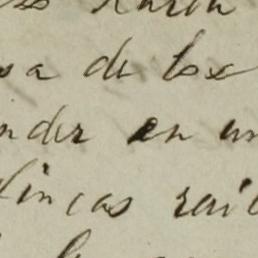 sa de los
nder en un
fincas raic